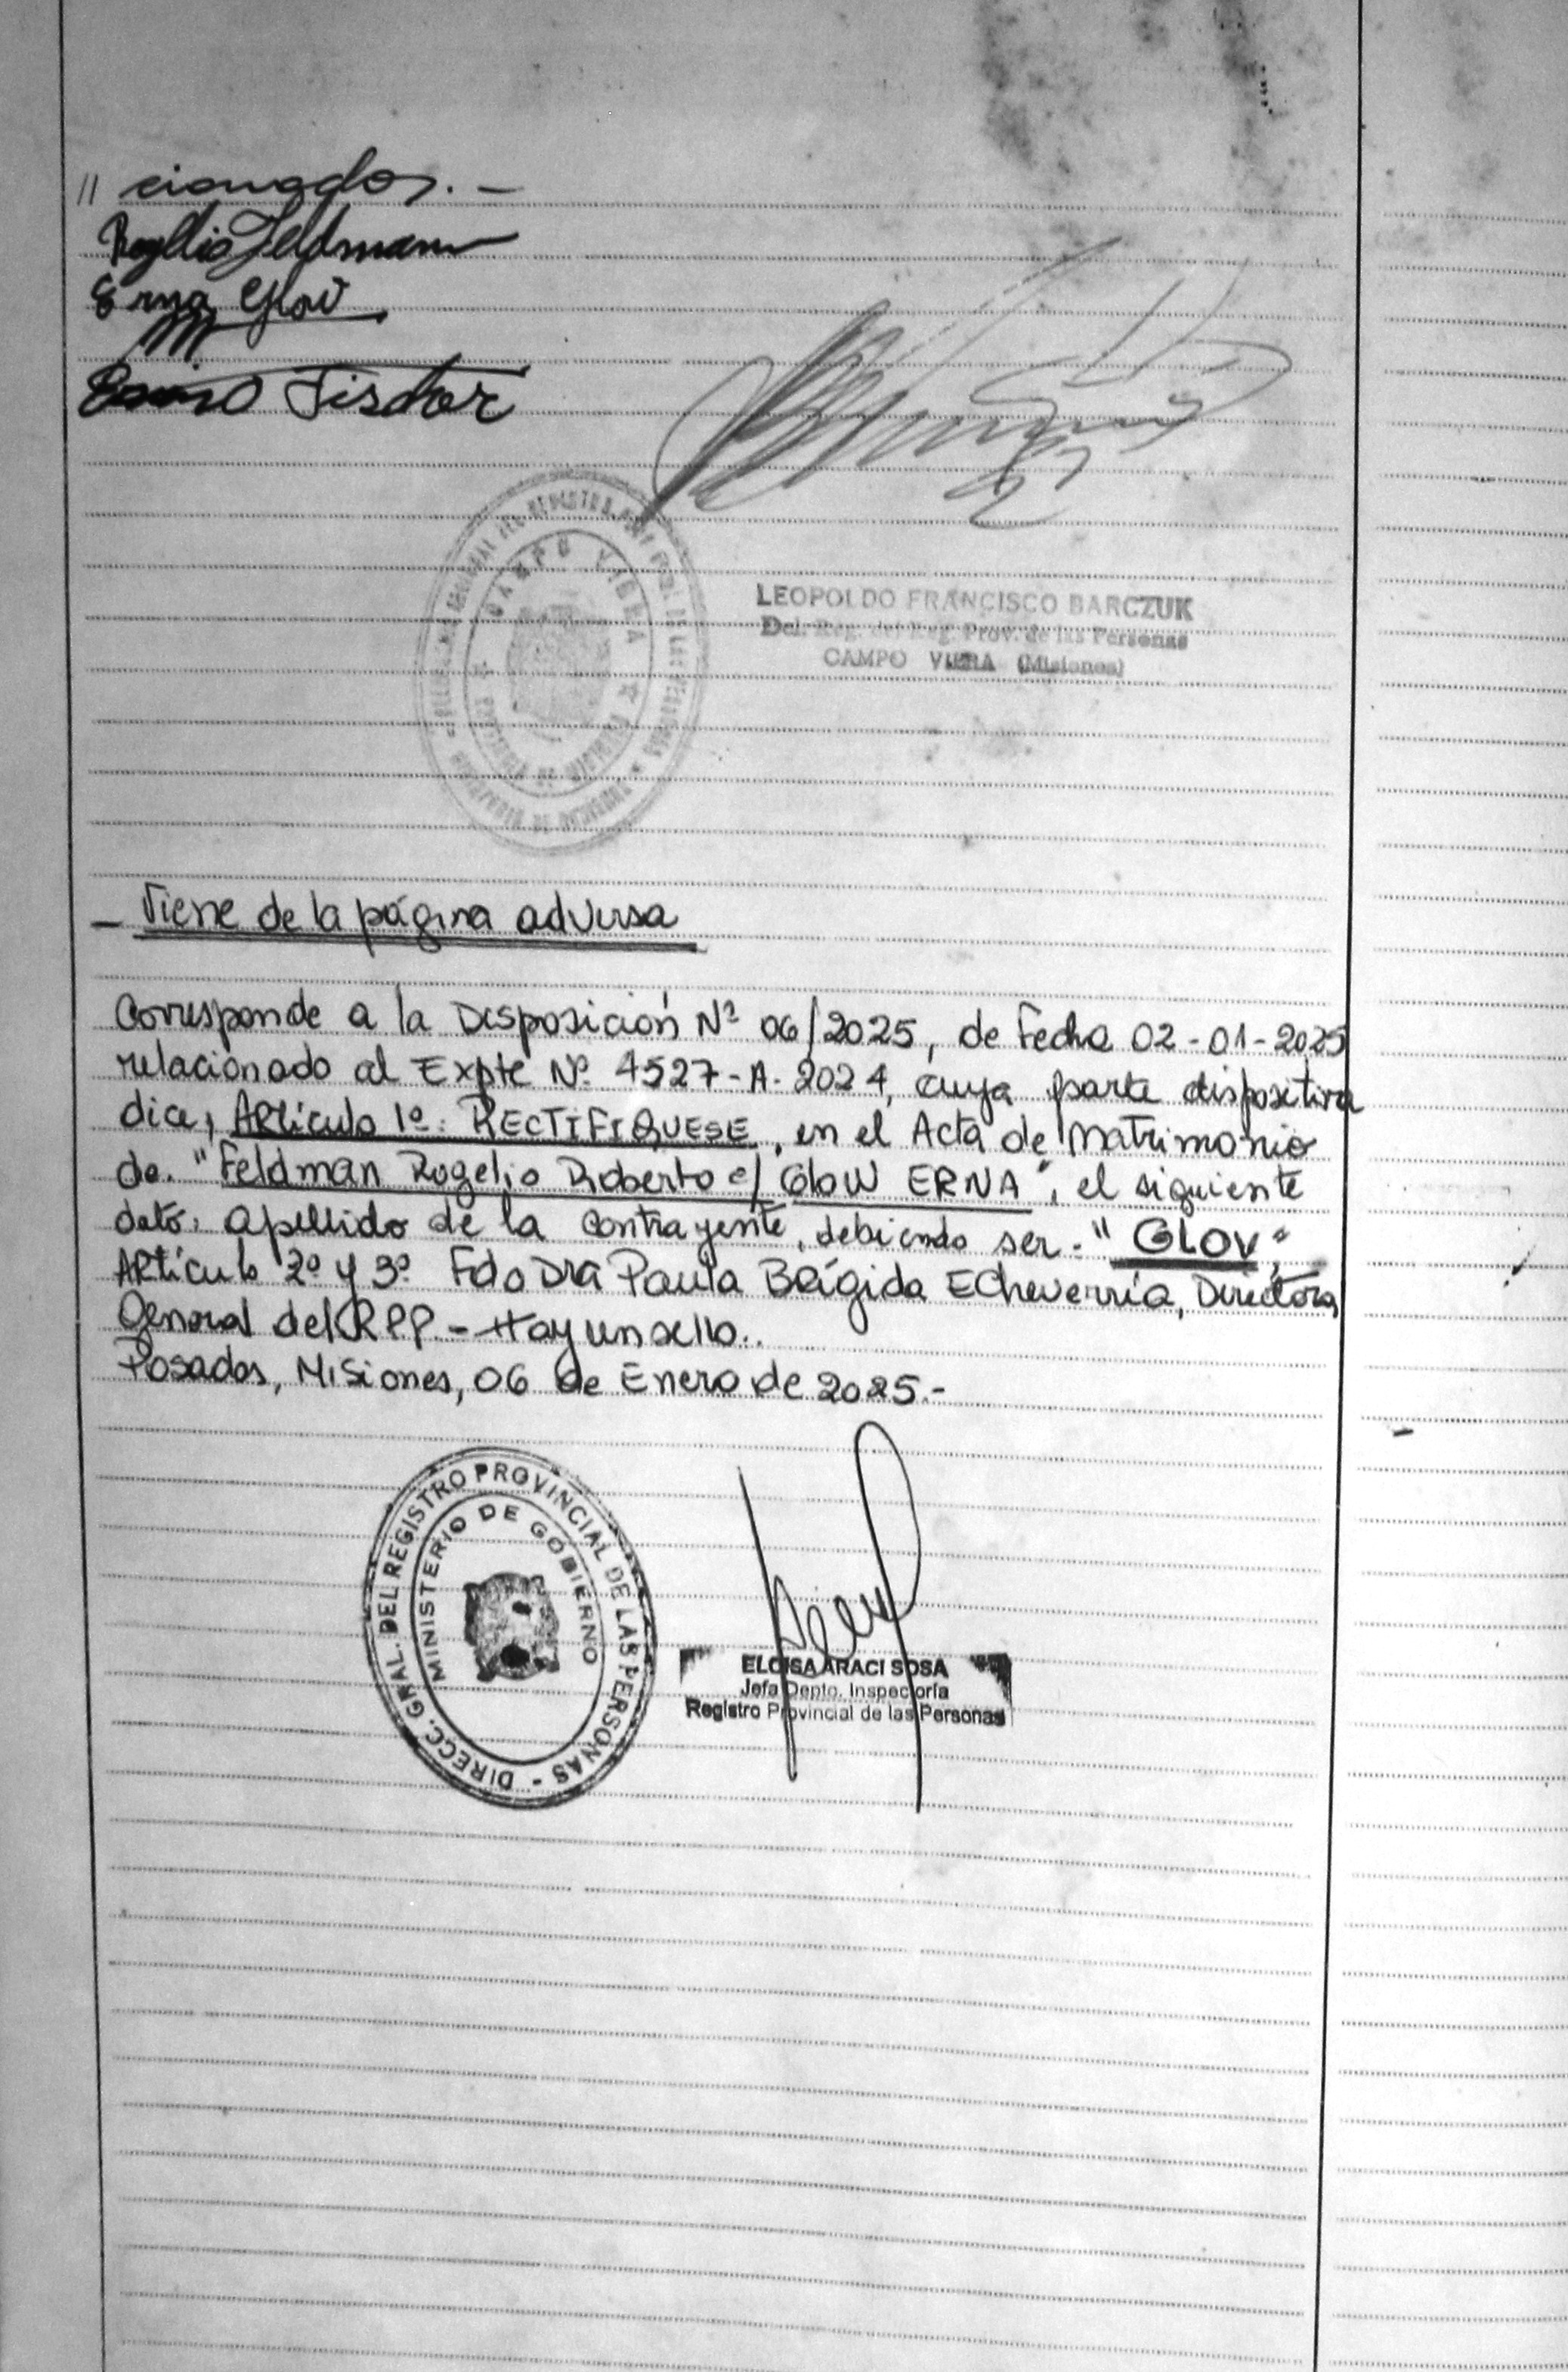 // cionados. -
Rogelio Feldmann
Erna Glow
Fischer
CAMPO VIERA
LEOPOLDO FRANCISCO BARCZUK
Del. Reg. del Reg. Prov. de las Personas
CAMPO VIERA (Misiones)
- Viene de la página adversa
Corresponde a la Disposición Nº 06/2025, de Fecha 02-01-2025
relacionado al Expte Nº 4527-A-2024, cuya parte dispositiva
dice, Artículo 1º: RECTIFIQUESE, en el Acta de Matrimonio
de. "Feldman Rogelio Roberto c/ Glow ERNA", el siguiente
dato: apellido de la contrayente, debiendo ser - "GLOV",
Artículo 2º y 3º Fdo Dra Paula Brígida Echeverría, Directora
General del RPP - Hay un sello..
Posadas, Misiones, 06 de Enero de 2025.-
DIRECC. GRAL. DEL REGISTRO PROVINCIAL DE LAS PERSONAS -
MINISTERIO DE GOBIERNO
ELOISA ARACI SOSA
Jefa Depto. Inspectoría
Registro Provincial de las Personas